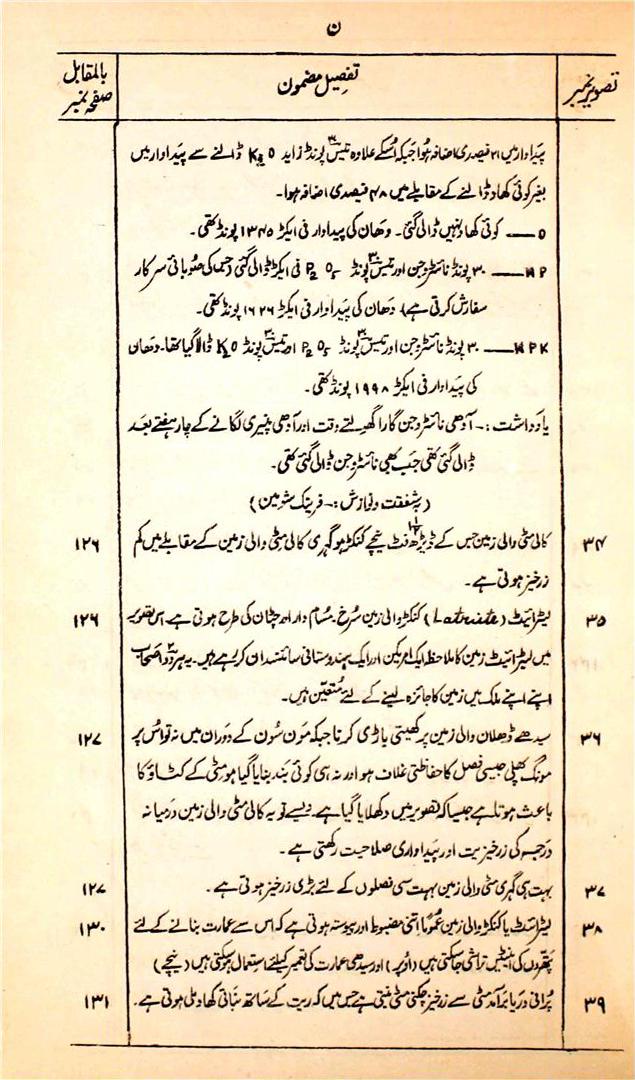 ن
تصویر نمبر تفصیل مضمون بالمقابل صفحہ نمبر
پیداوار میں ۲۱ فیصدی کا اضافہ ہوا جبکہ اسکے علاوہ تیس ۳۰ پونڈ زاید K₂O ڈالنے سے پیداوار میں
بغیر کوئی کھاد ڈالنے کے مقابلے میں ۴۸ فیصدی اضافہ ہوا۔
O — کوئی کھاد نہیں ڈالی گئی۔ دھان کی پیداوار فی ایکڑ ۱۳۴۵ پونڈ تھی۔
NP — ۳۰ پونڈ نائٹروجن اور تیس ۳۰ پونڈ P₂O₅ فی ایکڑ ڈالی گئی (جسکی صوباتی سرکار
سفارش کرتی ہے) دھان کی پیداوار فی ایکڑ ۱۶۲۶ پونڈ تھی۔
NPK — ۳۰ پونڈ نائٹروجن اور تیس ۳۰ پونڈ P₂O₅ اور تیس ۳۰ پونڈ K₂O ڈالا گیا تھا۔ دھان
کی پیداوار فی ایکڑ ۱۹۹۸ پونڈ تھی۔
یادداشت :۔ آدھی نائٹروجن گارا گھولتے وقت اور آدھی پنیری لگانے کے چار ہفتے بعد
ڈالی گئی تھی جب بھی نائٹروجن ڈالی گئی تھی۔
(بہ شفقت و نوازش :۔ فرینک شومین)
۳۴ کالی مٹی والی زمین جس کے ڈیڑھ ۱½ فٹ نیچے کنکڑ ہو گہری کالی مٹی والی زمین کے مقابلے میں کم ۱۲۶
زرخیز ہوتی ہے۔
۳۵ لیٹرائیٹ (Latriete) کنکڑ والی زمین سرخ۔ مسام دار اور چٹان کی طرح ہوتی ہے۔ اس تصویر ۱۲۶
میں لیٹرائیٹ زمین کا ملاحظہ ایک امریکن اور ایک ہندوستانی سائنسدان کر رہے ہیں۔ یہ ہر دو اصحاب
اپنے اپنے ملک میں زمین کا جائزہ لینے کے لئے متعین ہیں۔
۳۶ سیدھے ڈھلان والی زمین پر کھیتی باڑی کرنا جبکہ مون سون کے دوران میں نہ تو اس پر ۱۲۷
مونگ پھلی جیسی فصل کا حفاظتی غلاف ہو اور نہ ہی کوئی بند بنایا گیا ہو مٹی کے کٹاؤ کا
باعث ہوتا ہے جیسا کہ تصویر میں دکھلایا گیا ہے۔ ویسے تو یہ کالی مٹی والی زمین درمیانہ
درجہ کی زرخیزیت اور پیداواری صلاحیت رکھتی ہے۔
۳۷ بہت ہی گہری مٹی والی زمین بہت سی فصلوں کے لئے بڑی زرخیز ہوتی ہے۔ ۱۲۷
۳۸ لیٹرائیٹ یا کنکڑ والی زمین عموماً اتنی مضبوط اور پیوستہ ہوتی ہے کہ اس سے عمارت بنانے کے لئے ۱۳۰
پتھروں کی اینٹیں تراشی جا سکتی ہیں (اوپر) اور سیدھی عمارت کی تعمیر کیلئے استعمال ہو سکتی ہیں (نیچے)
۳۹ پرانی دریا برآمد مٹی سے زرخیز چکنی مٹی بنتی ہے جس میں کہ ریت کے ساتھ نباتی کھاد ملی ہوتی ہے۔ ۱۳۱